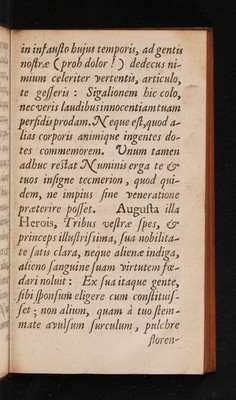 in infausto hujus temporis, ad gentis
nostræ (proh dolor!) dedecus ni-
mium celeriter vertentis, articulo,
te gesseris: Sigalionem hic colo,
nec veris laudibus innocentiam tuam
perfidis prodam. Neque est, quod a-
lias corporis animique ingentes do-
tes commemorem. Unum tamen
adhuc restat Numinis erga te &
tuos insigne tecmerion, quod qui-
dem, ne impius sine veneratione
præterire posset. Augusta illa
Herois, Tribus vestræ spes, &
princeps illustrissima, sua nobilita-
te satis clara, neque alienæ indiga,
alieno sanguine suam virtutem fœ-
dari noluit: Ex sua itaque gente,
sibi sponsum eligere cum constituis-
set; non alium, quam à tuo stem-
mate avulsum surculum, pulchre
floren-